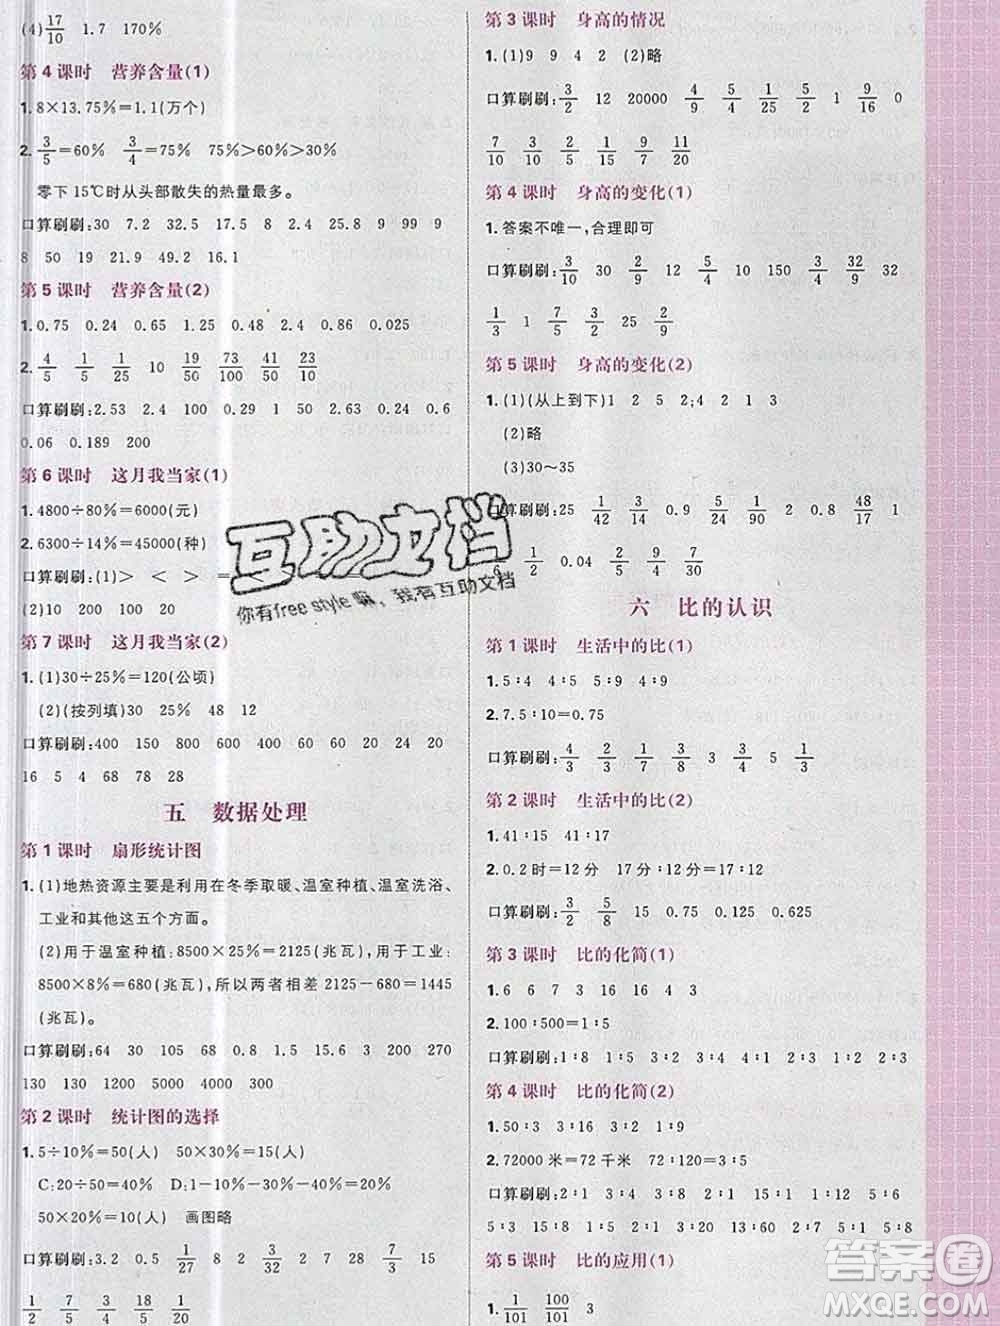 (4)17/10 1.7 170%
第 4 课时 营养含量(1)
1. 8×13.75%=1.1(万个)
2. 3/5=60% 3/4=75% 75%>60%>30%
零下 15℃时从头部散失的热量最多。
口算刷刷:30 7.2 32.5 17.5 2.4 25.9 9 99 9
8 50 19 21.9 49.2 16.1
第 5 课时 营养含量(2)
1. 0.75 0.24 0.65 1.25 0.48 2.4 0.86 0.025
2. 4/5 1/5 1/25 10 19/50 73/100 41/50 51/100
口算刷刷:2.53 2.4 100 0.29 1 50 2.64 0.24 0.6
0.06 0.189 200
第 6 课时 这月我当家(1)
1. 4800÷80%=6000(元)
2. 6300÷14%=45000(种)
口算刷刷:(1)> < > =
(2)10 20 200
第 7 课时 这月我当家(2)
1. (1)30÷25%=120(公顷)
(2)(按列填)30 25% 48 12
口算刷刷:400 150 800 600 400 60 20 24 20
16 5 4 68 78 28
五 数据处理
第 1 课时 扇形统计图
1. (1)地热资源主要是利用在冬季取暖、温室种植、温室洗浴、
工业和其他这五个方面。
(2)用于温室种植:8500×25%=2125(兆瓦),用于工业:
8500×8%=680(兆瓦),所以两者相差 2125-680=1445
(兆瓦)。
口算刷刷:64 30 105 68 0.8 1.5 15.6 3 200 270
130 130 1200 5000 4000 300
第 2 课时 统计图的选择
1. 5÷10%=50(人) 50×30%=15(人)
C:20÷50=40% D:1-10%-30%-40%=20%
50×20%=10(人) 画图略
口算刷刷:3.2 0.5 1/27 8 3/32 2 7 28 7/8 15
1/2 7/5 3/5
第 3 课时 身高的情况
1. (1)9 9 4 2 (2)略
口算刷刷:3/2 12 20000 4/9 4/5 1/25 3/2 1 9/16 0
7/10 9/10 3/5 15/16 7/11 19/20
第 4 课时 身高的变化(1)
1. 答案不唯一,合理即可
口算刷刷:3/10 30 2/9 12 1/2 10 150 3/4 32/9 32
1/3 1 7/5 3/2 25 20/9
第 5 课时 身高的变化(2)
1. (1)(从上到下)1 2 5 2;4 2 1 3
(2)略
(3)30～35
口算刷刷:25 1/42 3/14 0.9 5/2 9/10 2 0.8 48/17 1
1/2 0.04 1/2 7/8
六 比的认识
第 1 课时 生活中的比(1)
1. 5∶4 4∶5 5∶9 4∶9
2. 7.5∶10=0.75
口算刷刷:4/3 2/3 1/6 7/8 3 3/4 5 1/3
第 2 课时 生活中的比(2)
1. 41∶15 41∶17
2. 0.2 时=12 分 17 分∶12 分=17∶12
口算刷刷:3/2 5/8 15 0.75 0.125 0.625
第 3 课时 比的化简(1)
1. 6 6 7 16 4 3
2. 100∶500=1∶5
口算刷刷:1∶8 1∶5 3∶2 4∶1 1∶5 2∶3
第 4 课时 比的化简(2)
1. 50∶3 3∶1 1∶9
2. 72000 米=72 千米 72∶120=3∶5
口算刷刷:2∶1 3∶4 4∶1 5∶1 1∶4 4∶5
5∶3 5∶9 5∶3 10∶1 2∶7 5∶6 5∶8
第 5 课时 比的应用(1)
1. 1/101 100/101 3
互助文档
你有free style嘛,我有互助文档
答案圈
MXQE.COM